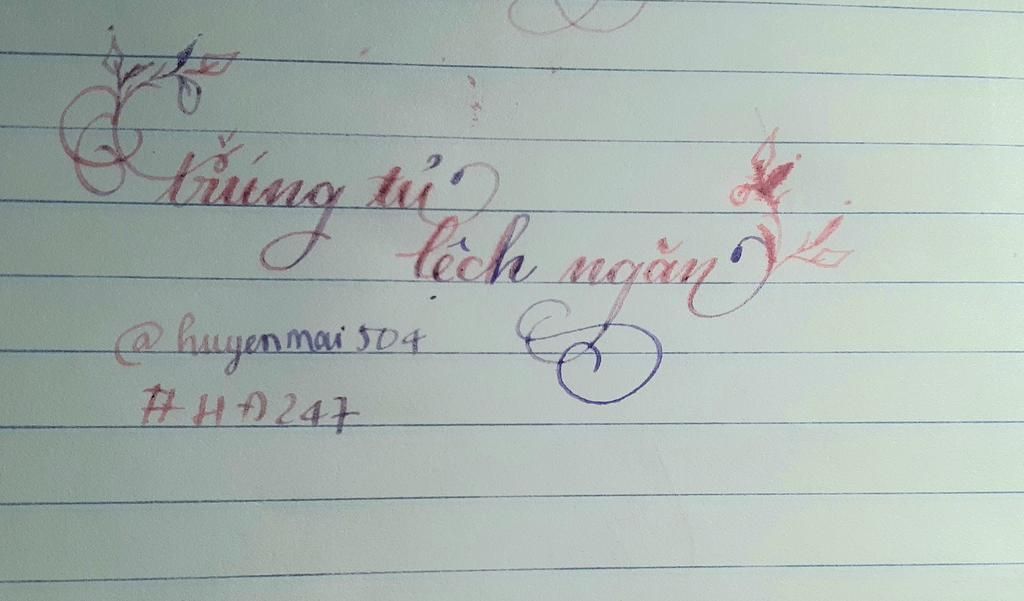 trứng tủ
lệch ngăn
@huyenmai504
#HA247